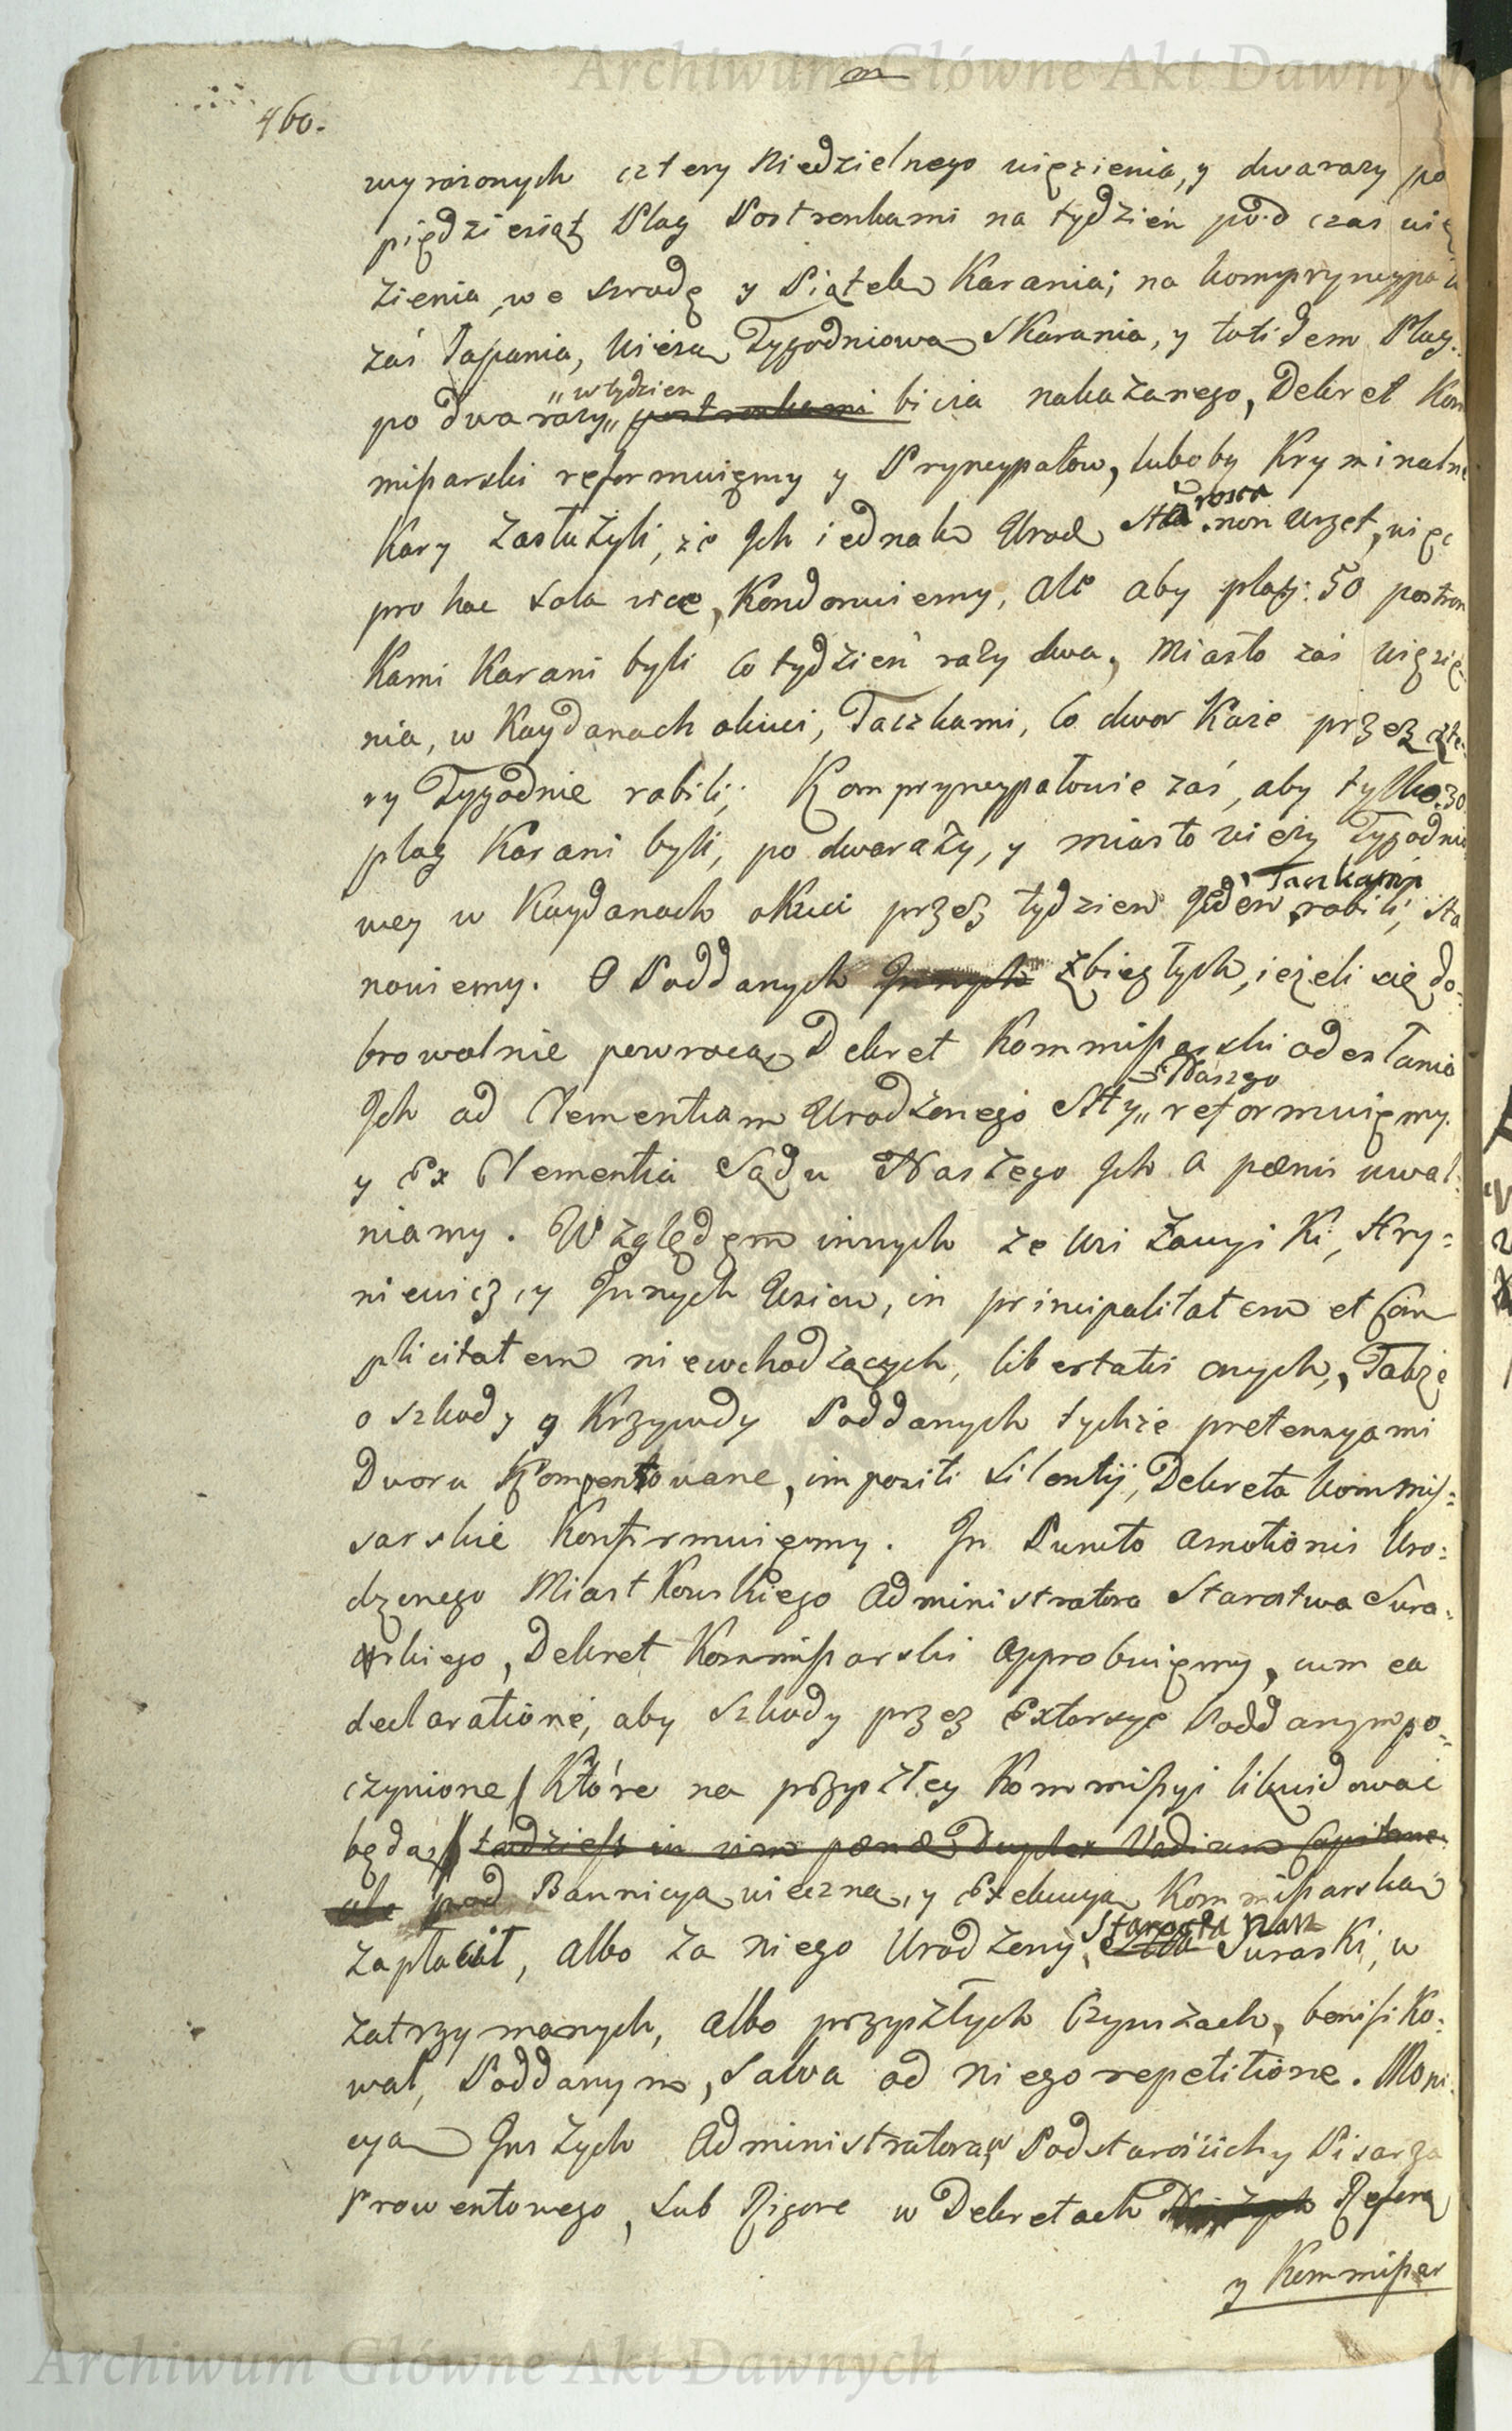 Archiwum Główne Akt Dawnych
460.
wyrażonych cztery Niedzielnego więzienia, y dwa razy po
piędziesiąt Plag Postronkami na tydzień pod czas wię
zienia, we srodę y Piątek Karania; na Kompryncypał
zaś Łapania, Wieżą Tygodniową Skarania, y totidem Plag
po dwa razy „w tydzien postronkami bicia nakazanego, Dekret Kom
mißarski reformuięmy y Pryncypałow, luboby Kryminalne
Kary zasłużyli, że Ich iednak Urod. Starosta non urget, więc
pro hac sola vice, Kondonuiemy, ale aby plag: 50 postron
Kami Karani byli co tydzień razy dwa, Miasto zaś więzię
nia, w Kaydanach okuci, Taczkami, co dwor Każe przez czte
ry Tygodnie robili; Kompryncypałowie zaś, aby tylko 30
plag Karani byli, po dwa razy, y miasto wieży Tygodnio
wey w Kaydanach okuci przez tydzien Ieden Taczkami robili, sta
nowiemy. O Poddanych Innych zbiegłych, ieżeli się do-
browolnie powrocą Dekret Kommißarski odesłania
Ich ad Clementiam Urodzonego Stty „Naszego reformuięmy.
y Ex Clementia Sądu Naszego Ich a pœnis uwal-
niamy. Względem innych ze wsi Zawyiki, Hry=
niewicz, y Innych Wsiow, in principalitatem et Com
plicitatem niewchodzących, libertatis onych, Takze
o szkody y Krzywdy Poddanych tychże pretensyami
Dworu Kompensowane, impositi silentij, Dekreta Kommis=
sarskie Konfirmuięmy. In Puncto amotionis Uro=
dzonego Miastkowskiego Administratora Starostwa Sura-
skiego, Dekret Kommißarski approbuięmy, cum ea
declaratione, aby szkody przez Extorsye Poddanym po-
czynione / Które na przyszłey Kommißyi likwidować
będą / tudzież in vim pœnæ Duplex Vadium Capitanei
ale pod Bannicyą wieczną, y Exekucyą Kommißarską
zapłacił, albo za niego Urodzony Starosta nasz Suraski, w
zatrzymanych, albo przyszłych Czynszach, bonifiko=
wał, Poddanym, salva ad niego repetitione. Moni-
cyą Inszych Administratora, Podstarościch y Pisarza
Prowentowego, sub Rigore w Dekretach Refer.
y Kommißar
Archiwum Główne Akt Dawnych